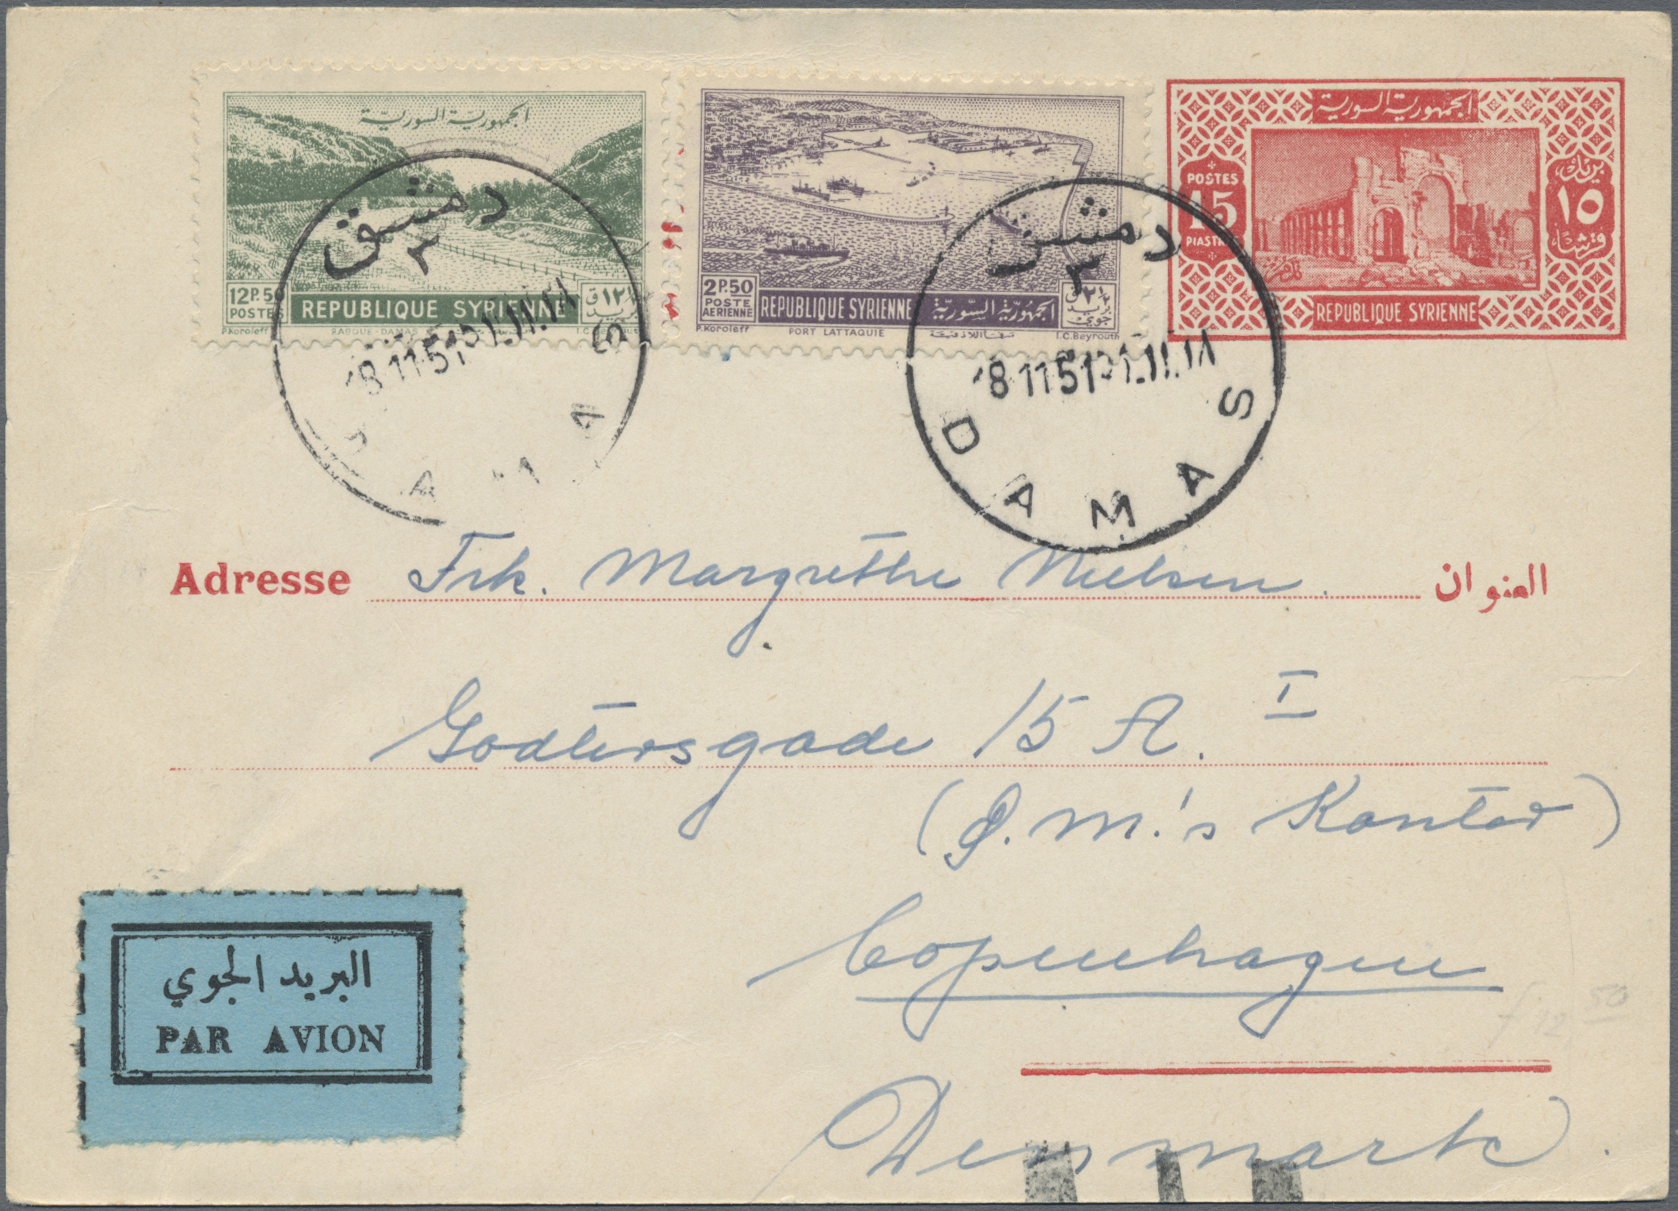 الجمهورية السورية
12 P.50
POSTES
REPUBLIQUE SYRIENNE
P.Koroleff
I.C.Beyrouth
2 P.50
POSTE
AERIENNE
REPUBLIQUE SYRIENNE
الجمهورية السورية
P.Koroleff
PORT LATTAQUIE
I.C.Beyrouth
الجمهورية السورية
POSTES
15
PIASTRES
١٥
REPUBLIQUE SYRIENNE
دمشق
٣
8 11 51
DAMAS
دمشق
٣
8 11 51
DAMAS
Adresse Frk. Margrethe Nielsen. العنوان
Godtersgade 15 A. I
(G.M.'s Kontor)
Copenhagen
Denmark.
البريد الجوي
PAR AVION